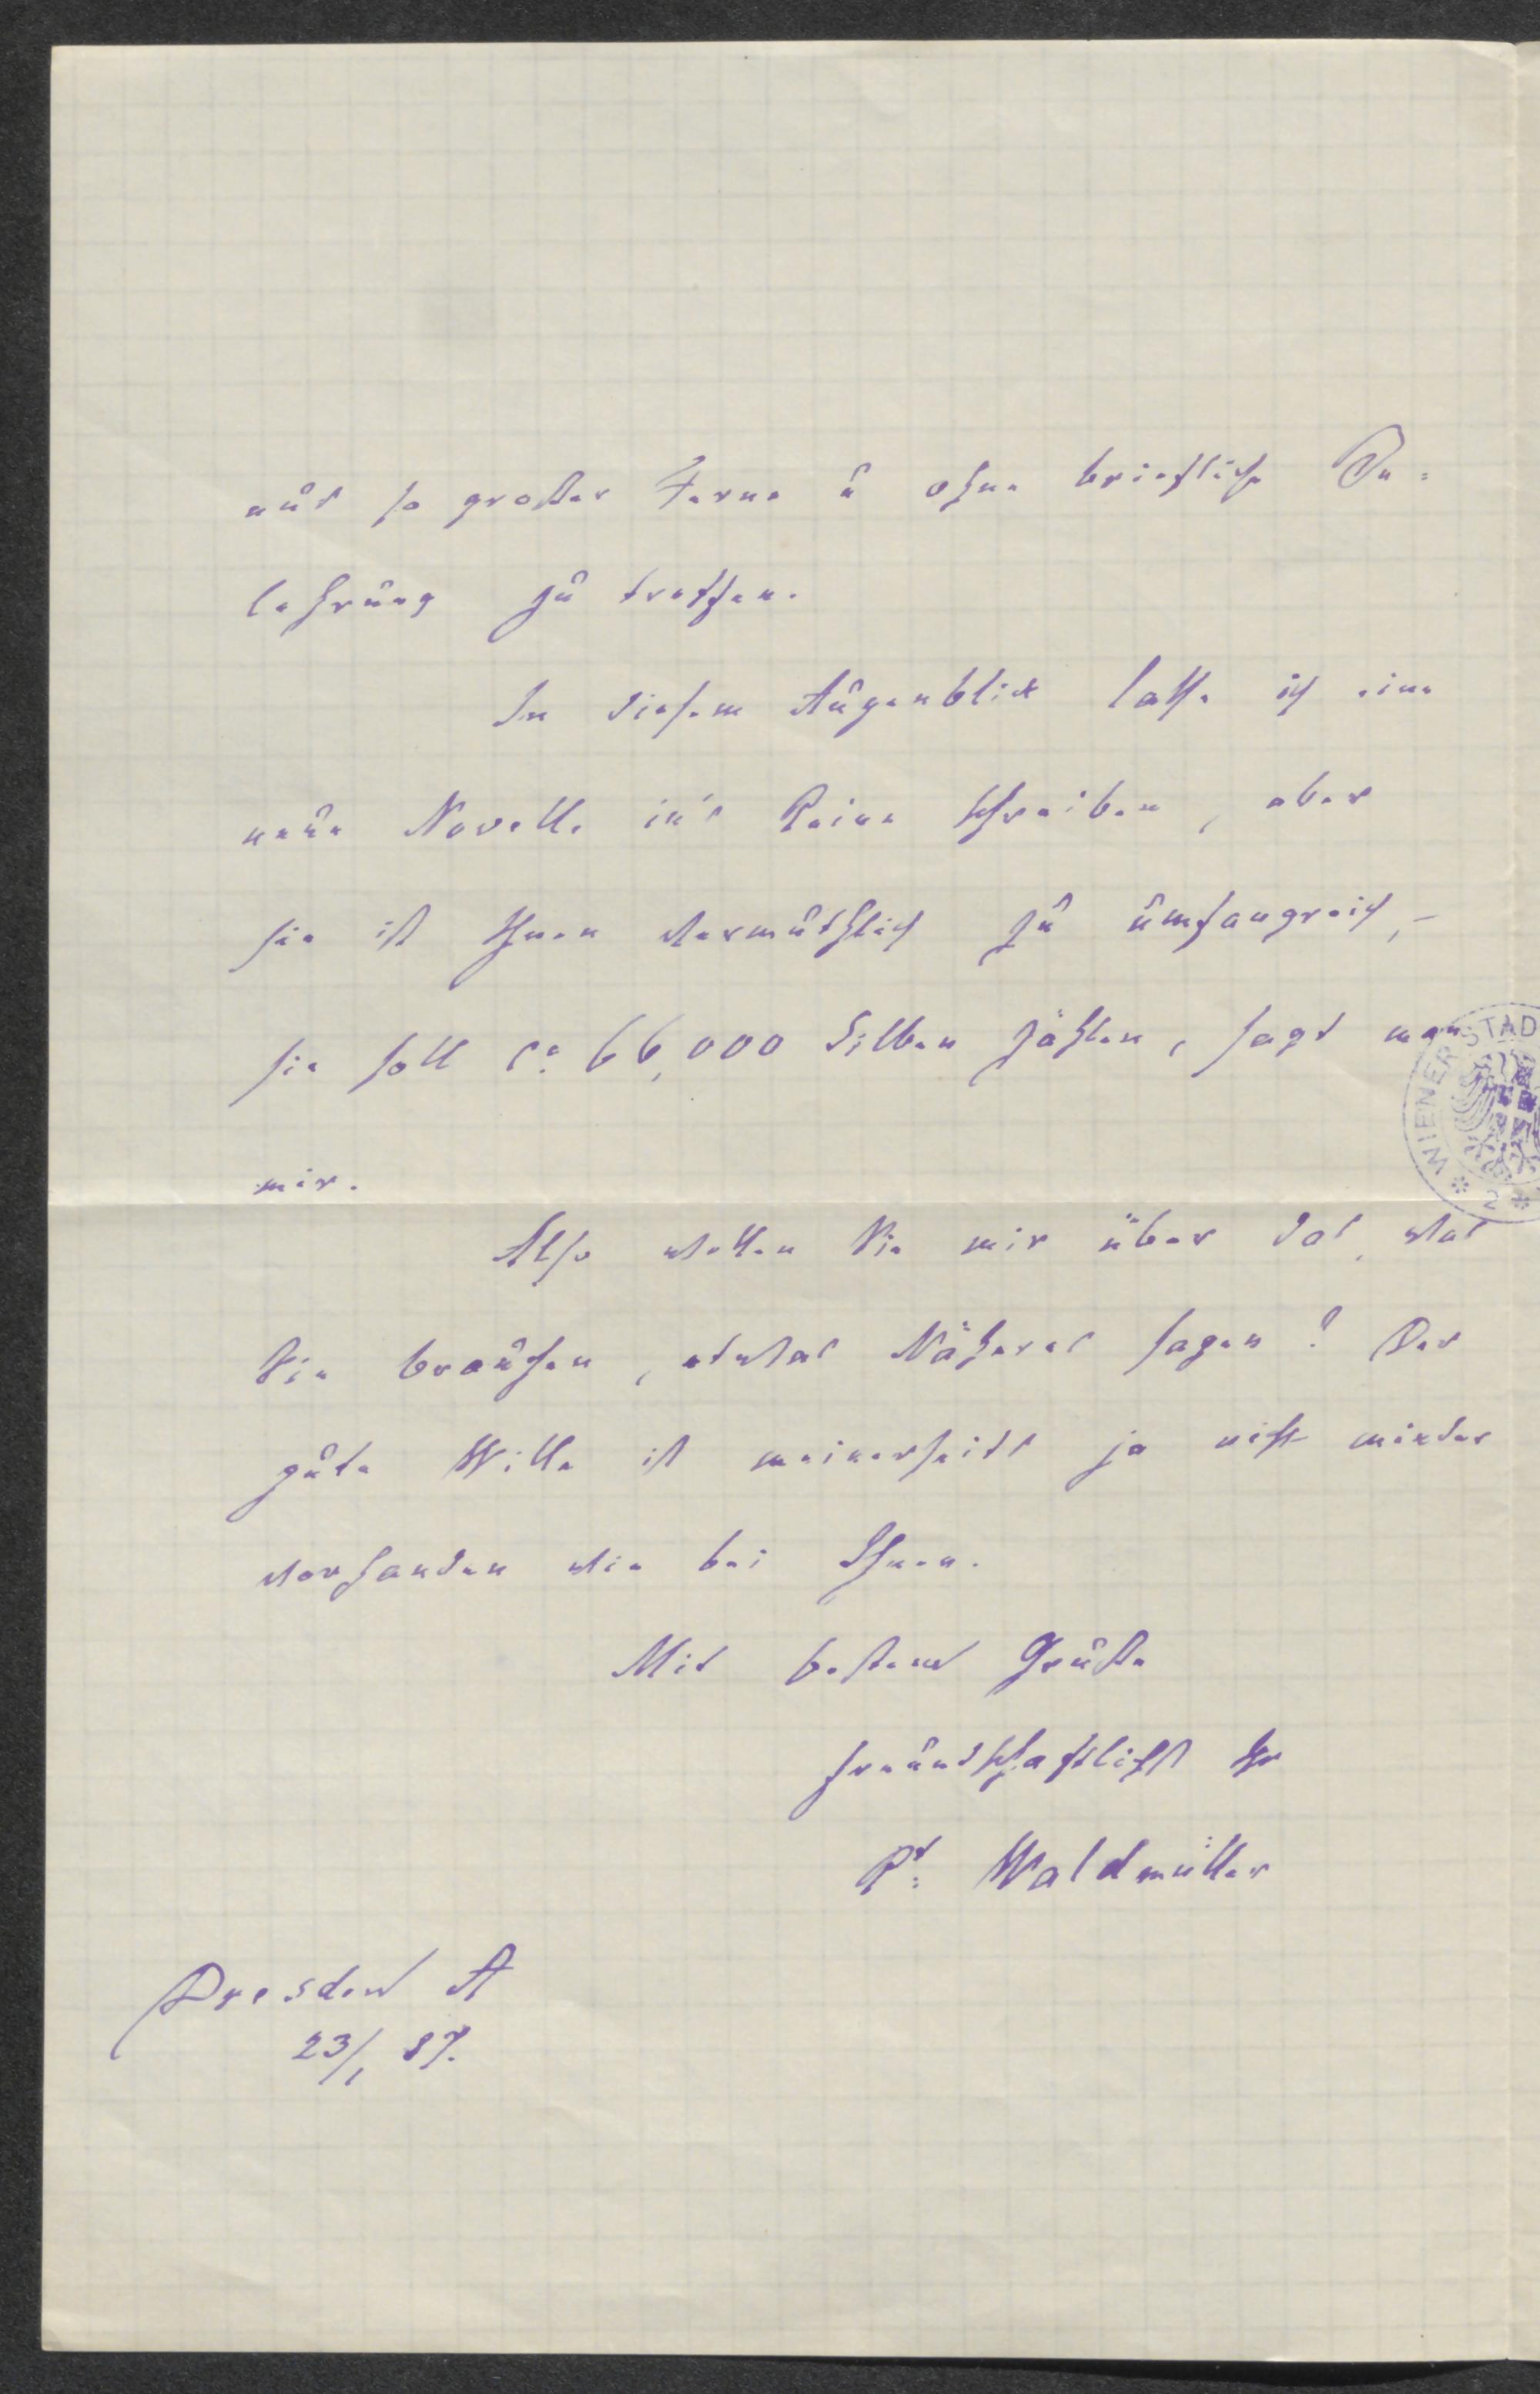 aus so großer Ferne u ohne briefliche Be-
lehrung zu treffen.
In diesem Augenblick lasse ich eine
neue Novelle in's Reine schreiben, aber
sie ist Ihnen vermuthlich zu umfangreich, –
sie soll ca. 66,000 Silben zählen, sagt man
mir.
Also wollen Sie mir über das, was
Sie brauchen, etwas Näheres sagen? Der
gute Wille ist meinerseits ja nicht minder
vorhanden wie bei Ihnen.
Mit bestem Gruße
freundschaftlichst Ihr
Rt: Waldmüller
Dresden A
23/1 87.
WIENER STAD
* 2 *